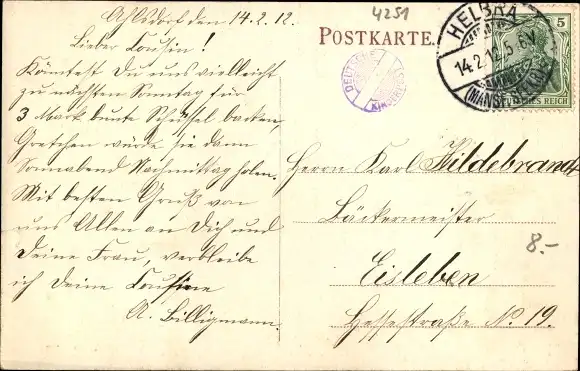 Ahlsdorf den 14.2.12.
Lieber Cousin!
Könntest Du uns vielleicht
zu nächsten Sonntag für
3 Mark bunte Schüssel backen,
Gretchen würde sie dann
Sonnabend Nachmittag holen.
Mit besten Gruß von
uns Allen an Dich und
Deine Frau, verbleibe
ich Deine Cousine
A. Billigmann.
4251
POSTKARTE.
DEUTSCHE
HELBRA
14.2.12.5-6V
(MANSFELD)
5
DEUTSCHES REICH
Herrn Karl Hildebrandt
Bäckermeister
Eisleben
Hessestraße N. 19.
8.-